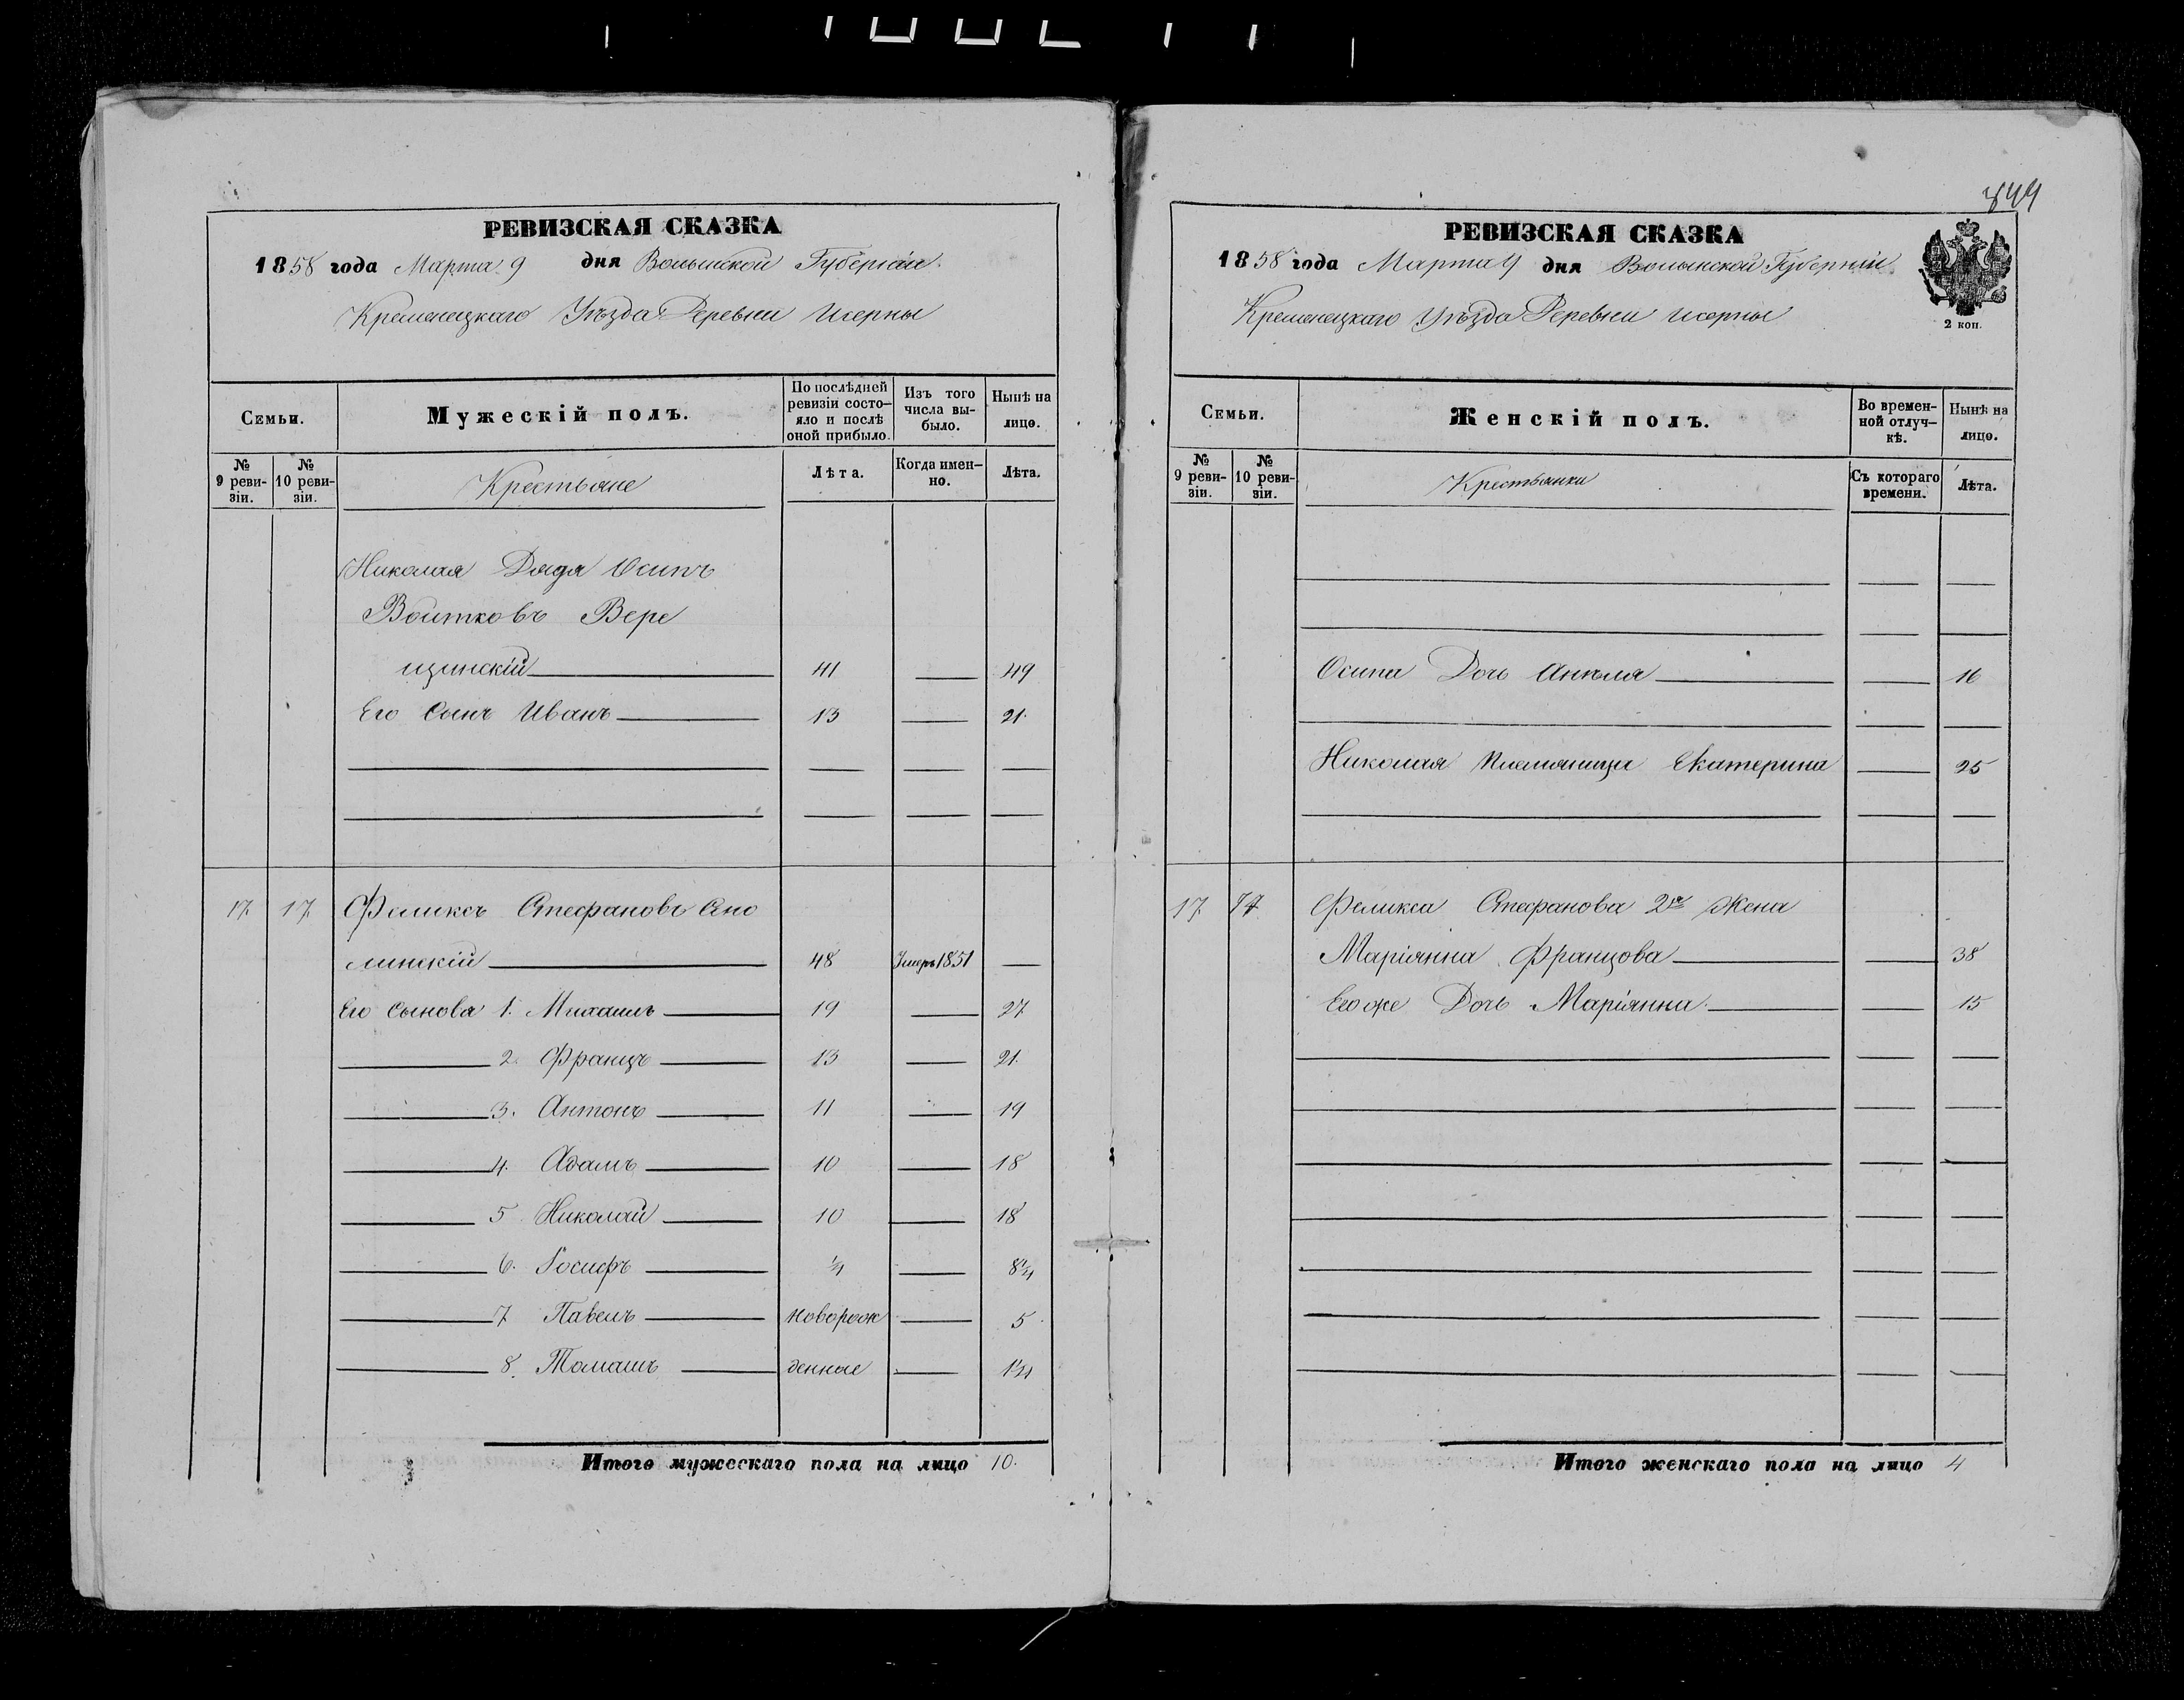 РЕВИЗСКАЯ СКАЗКА
1858 года Марта 9 дня Волынской Губерніи
Кременецкаго Уѣзда Деревни Исерны
Семьи.
Мужескій полъ.
По послѣдней ревизіи состояло и послѣ оной прибыло.
Изъ того числа выбыло.
Нынѣ на лицо.
№ 9 ревизіи.
№ 10 ревизіи.
Крестьяне
Лѣта.
Когда именно.
Лѣта.
Николая Дядя Осипъ
Войтковъ Вере
щинскій 41 49
Его Сынъ Иванъ 13 21.
17. 17. Феликсъ Стефановъ
линскій 48 Умеръ 1851
Его Сынова 1. Михаилъ 19 27
2. Францъ 13 21.
3. Антонъ 11 19
4. Адамъ 10 18
5 Николай 10 18
6. Іосифъ 1/4 8 1/4
7 Павелъ новорож 5
8. Томашъ денные 1 1/4
Итого мужескаго пола на лицо 10.
844
РЕВИЗСКАЯ СКАЗКА
1858 года Марта 9 дня Волынской Губерніи
Кременецкаго Уѣзда Деревни Исерны
2 коп.
Семьи.
Женскій полъ.
Во временной отлучкѣ.
Нынѣ на лицо.
№ 9 ревизіи.
№ 10 ревизіи.
Крестьянки
Съ котораго времени.
Лѣта.
Осипа Дочь Анеля 16
Николая Племяница Екатерина 25
17 17 Феликса Стефанова 2я Жена
Маріянна Францова 38
Его же Дочь Маріянна 15
Итого женскаго пола на лицо 4